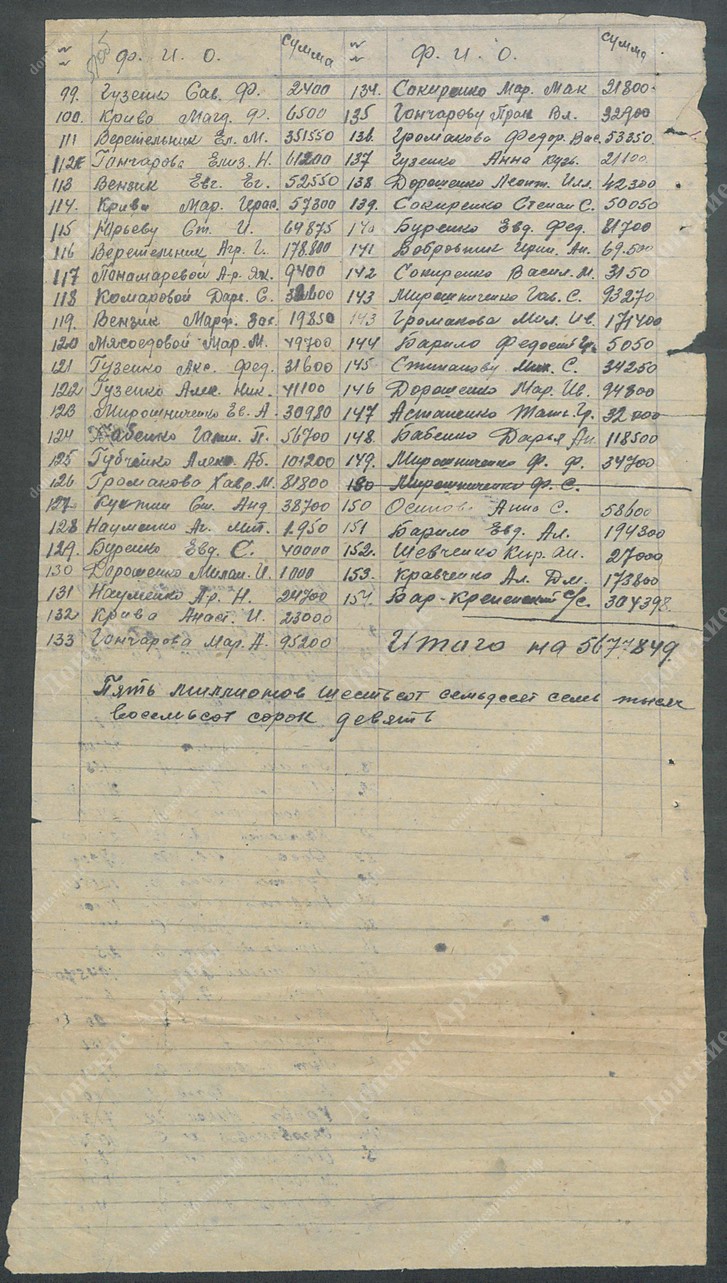 № Ф. И. О. сумма № Ф. И. О. сумма
99. Гузенко Сав. Ф. 2400 134. Сокиренко Мар. Мак 21800.
100. Крива Магд. Ф. 6500 135 Гончарову Прак Вл. 32900
111 Веретельник Ел. М. 351550 136. Громакова Федор. Вас. 53350
112 Гончарова Елиз. Н. 61200 137 Гузенко Анна Кузь. 21100.
113 Вензик Евг. Ег. 52550 138. Дорошенко Леонт. Илл. 42300
114. Крива Мар. Герас. 57300 139. Сокиренко Степан С. 50050
115 Юрьеву Ст. И. 64875 140 Буренко Евд. Фед. 81700
116 Веретельник Агр. Г. 178.800 141 Бобровник Ирин. Ан. 69.500
117 Понамаревой А-р. Як. 9400 142 Сокиренко Васил. М. 3150
118 Комаровой Дарь. С. 143 Мирошниченко Гав. С. 93270
119. Вензик Марф. Зах. 19850 143 Громакова Мил. Ив. 171400
120 Мясоедовой Мар. М. 49700 144 Барило Федост Гр. 5050
121 Гузенко Акс. Фед. 31600 145 Степанову Мих. С. 34250
122 Гузенко Алек. Ник. 41100 146 Дорошенко Мар. Ив. 94800
123 Мирошниченко Ев. А. 30980 147 Астаненко Тать. Гр. 32000
124 Бабенко П. 56700 148. Бабенко Дарья Ан. 118500
125 Губченко Алек. Аб. 101200 149. Мирошниченко Ф. Ф. 34700
126 Громакова Хавр. М. 81800 150 Мирошниченко Ф. С.
127 Куктин Ст. Анд. 38700 150 Осипова Анна С. 58600
128 Науменко Аг. Мит. 1.950 151 Барило Евд. Ал. 194300
129. Буренко Евд. С. 40000 152. Шевченко Кир. Ан. 27000
130 Дорошенко Милан. И. 1000 153. Кравченко Ал. Дм. 173800
131 Науменко Пр. Н. 24700 154. Бар-Крепенский с/с. 304398.
132 Крива Анаст. И. 23000
133 Гончарова Мар. А. 95200 Итого на 5677849.
Пять миллионов шестьсот семьдесят семь тысяч
восемьсот сорок девять
Донские Архивы